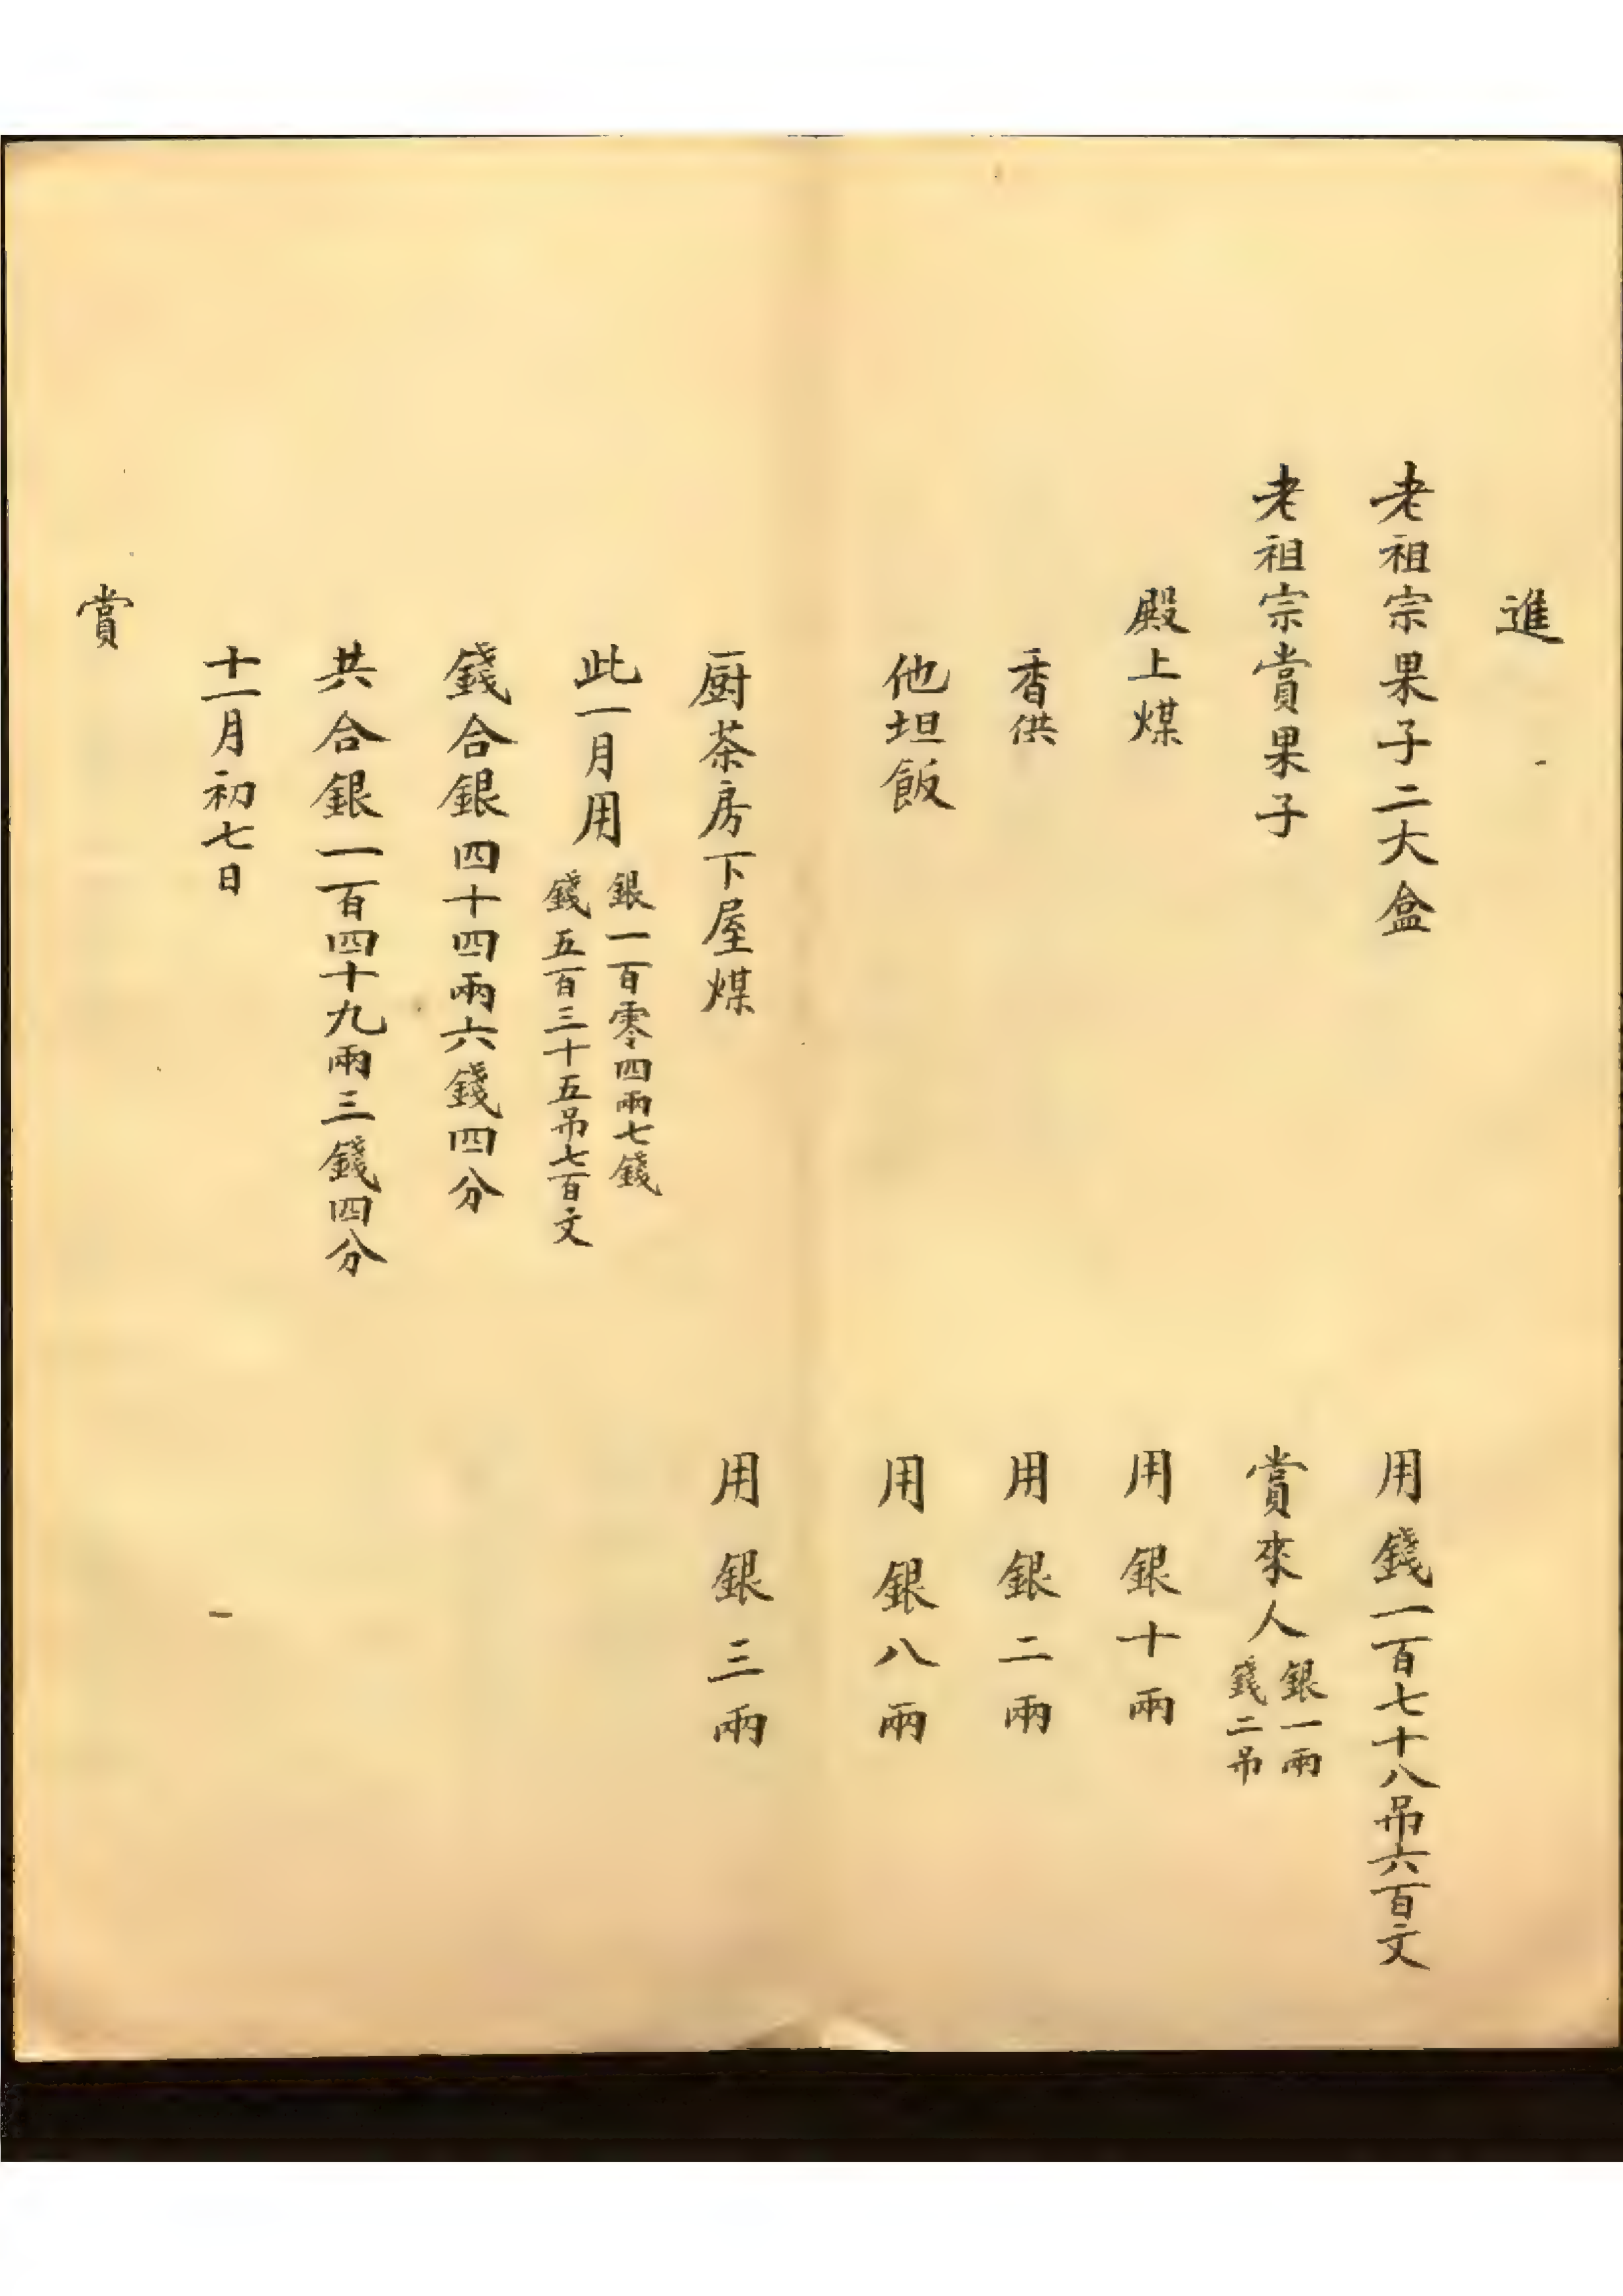 進
老祖宗果子二大盒 用錢一百七十八吊六百文
老祖宗賞果子 賞來人銀一兩
錢二吊
殿上煤 用銀十兩
香供 用銀二兩
他坦飯 用銀八兩
厨茶房下屋煤 用銀三兩
此一月用銀一百零四兩七錢
錢五百三十五吊七百文
錢合銀四十四兩六錢四分
共合銀一百四十九兩三錢四分
十一月初七日
賞